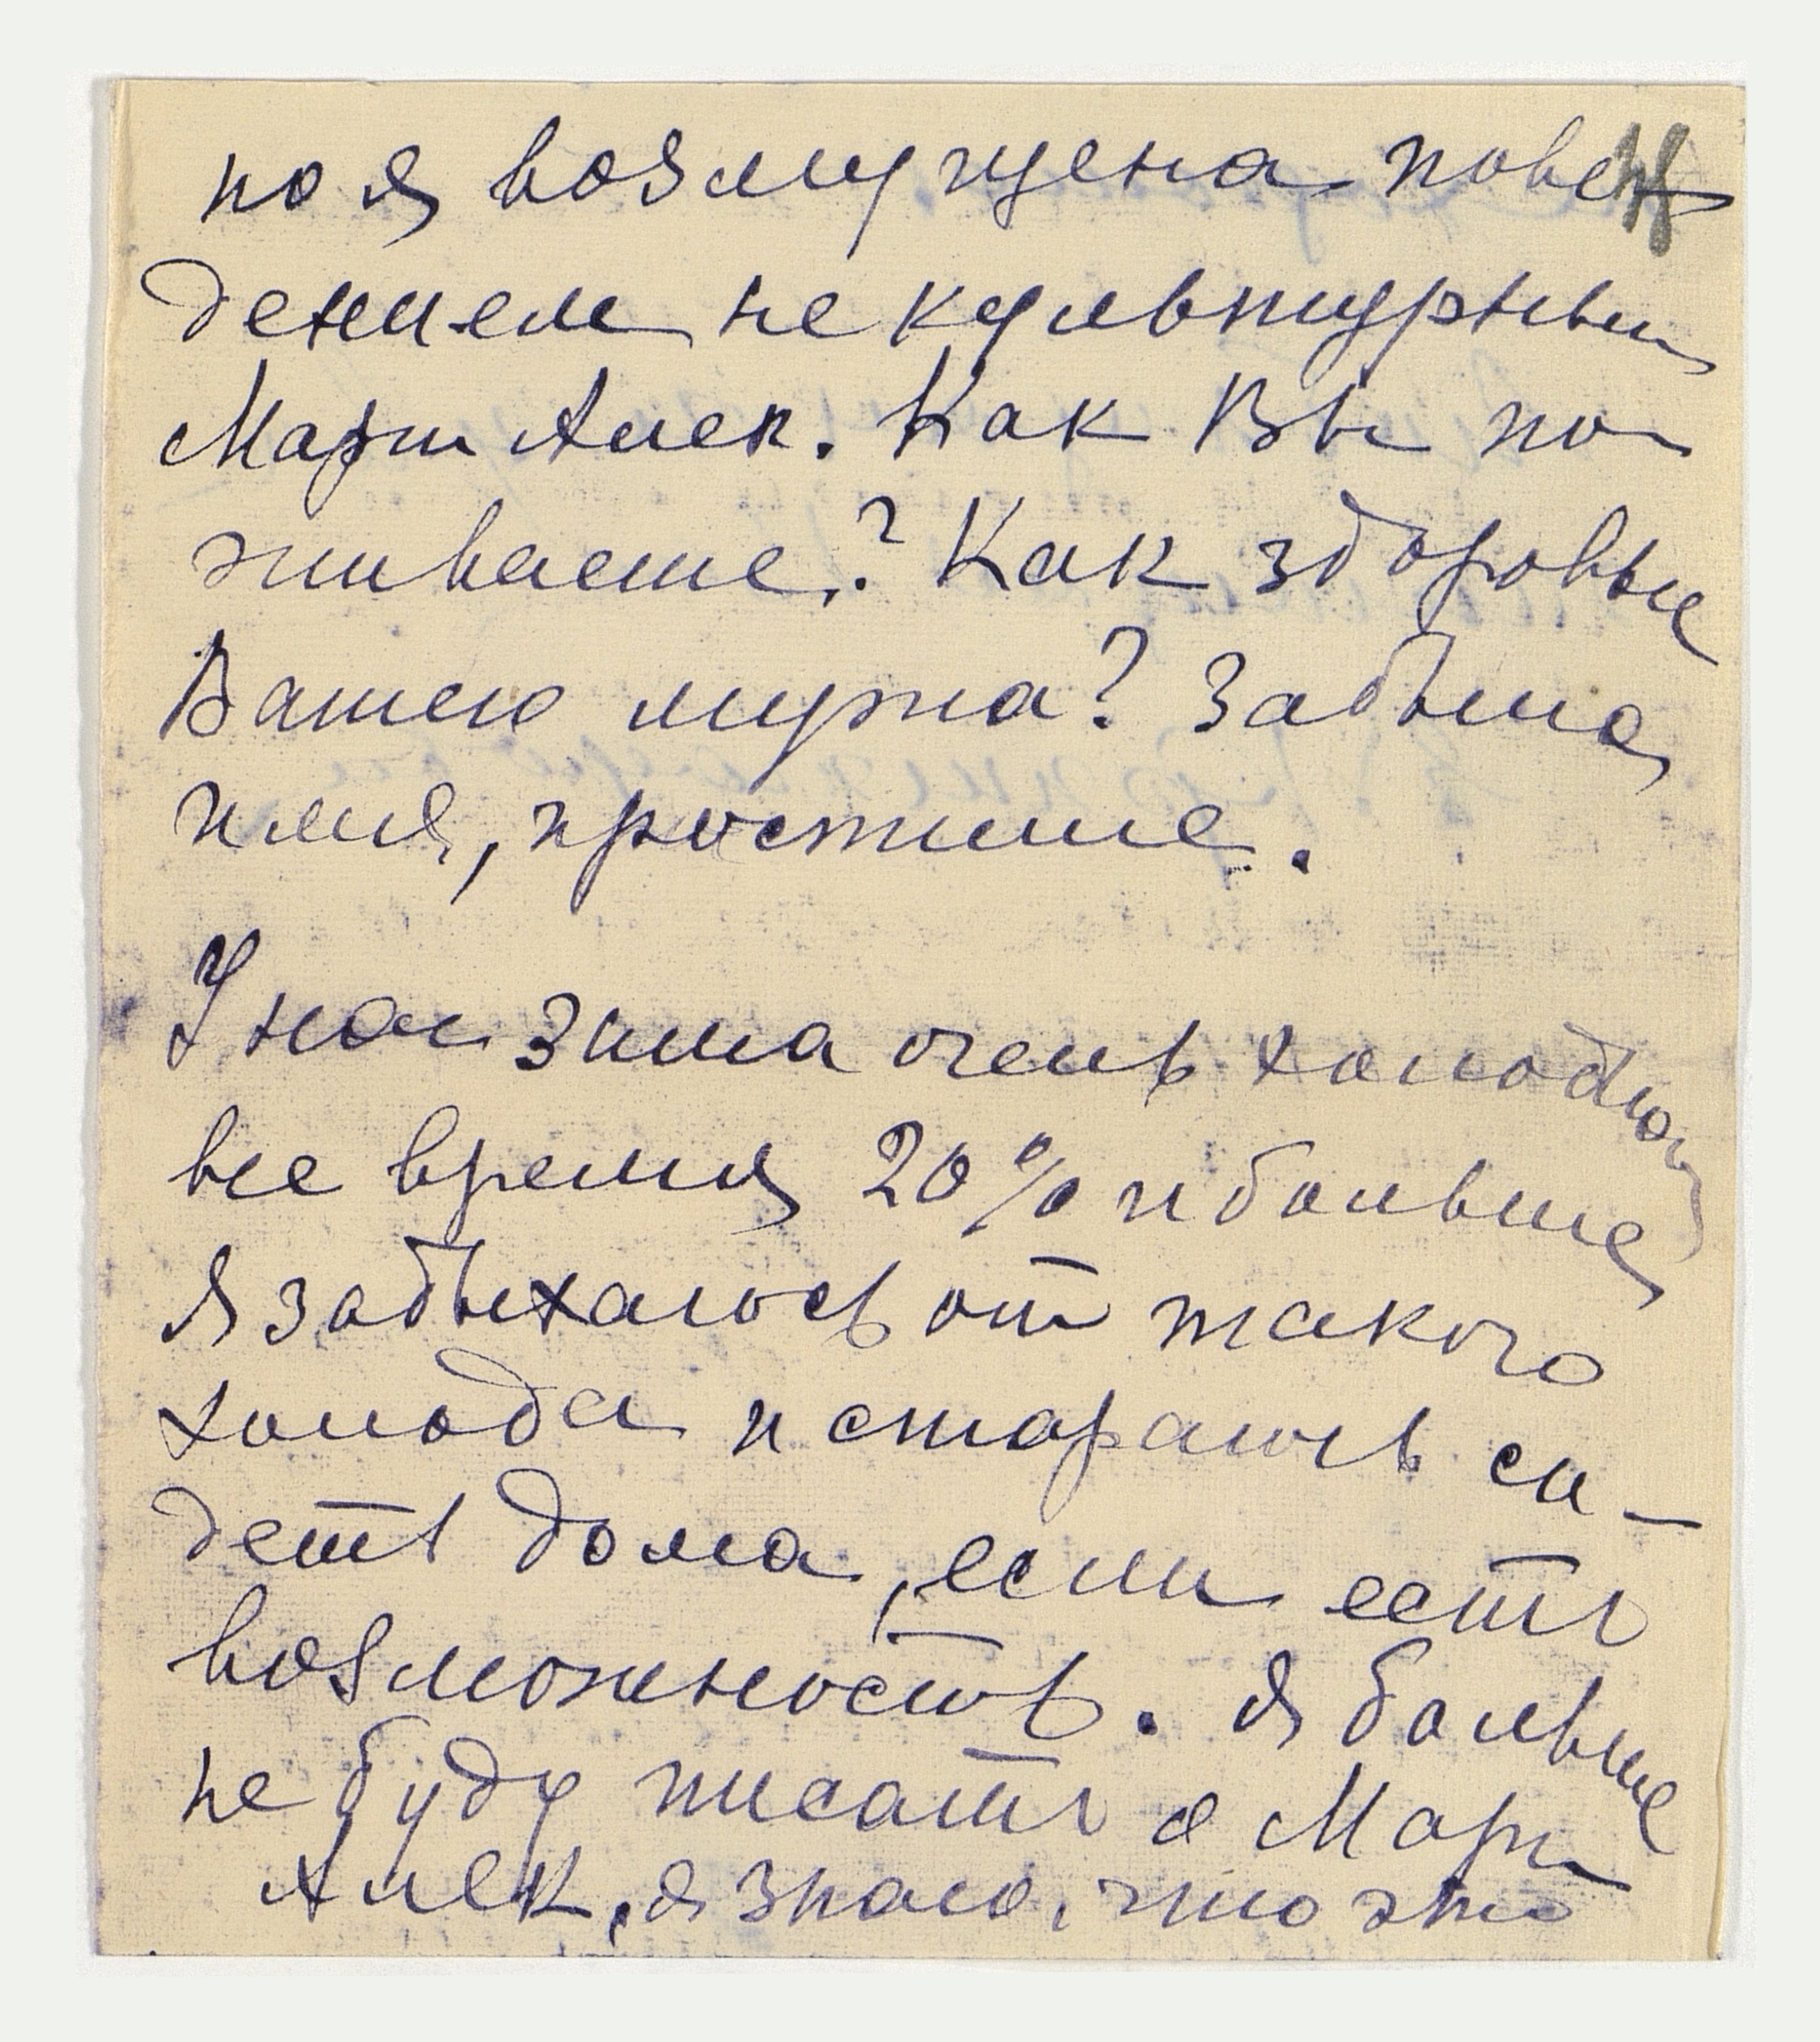 но я возмущена пове-
дением не культурным
Мари Алек. Как Вы по-
живаете? Как здоровье
Вашего мужа? Забыла
имя, простите.
У нас зима очень холодная
все время 20% и больше
Я задыхаюсь от такого
холода и стараюсь си-
деть дома, если есть
возможность. Я больше
не буду писать о Мари
Алек, я знаю, что это